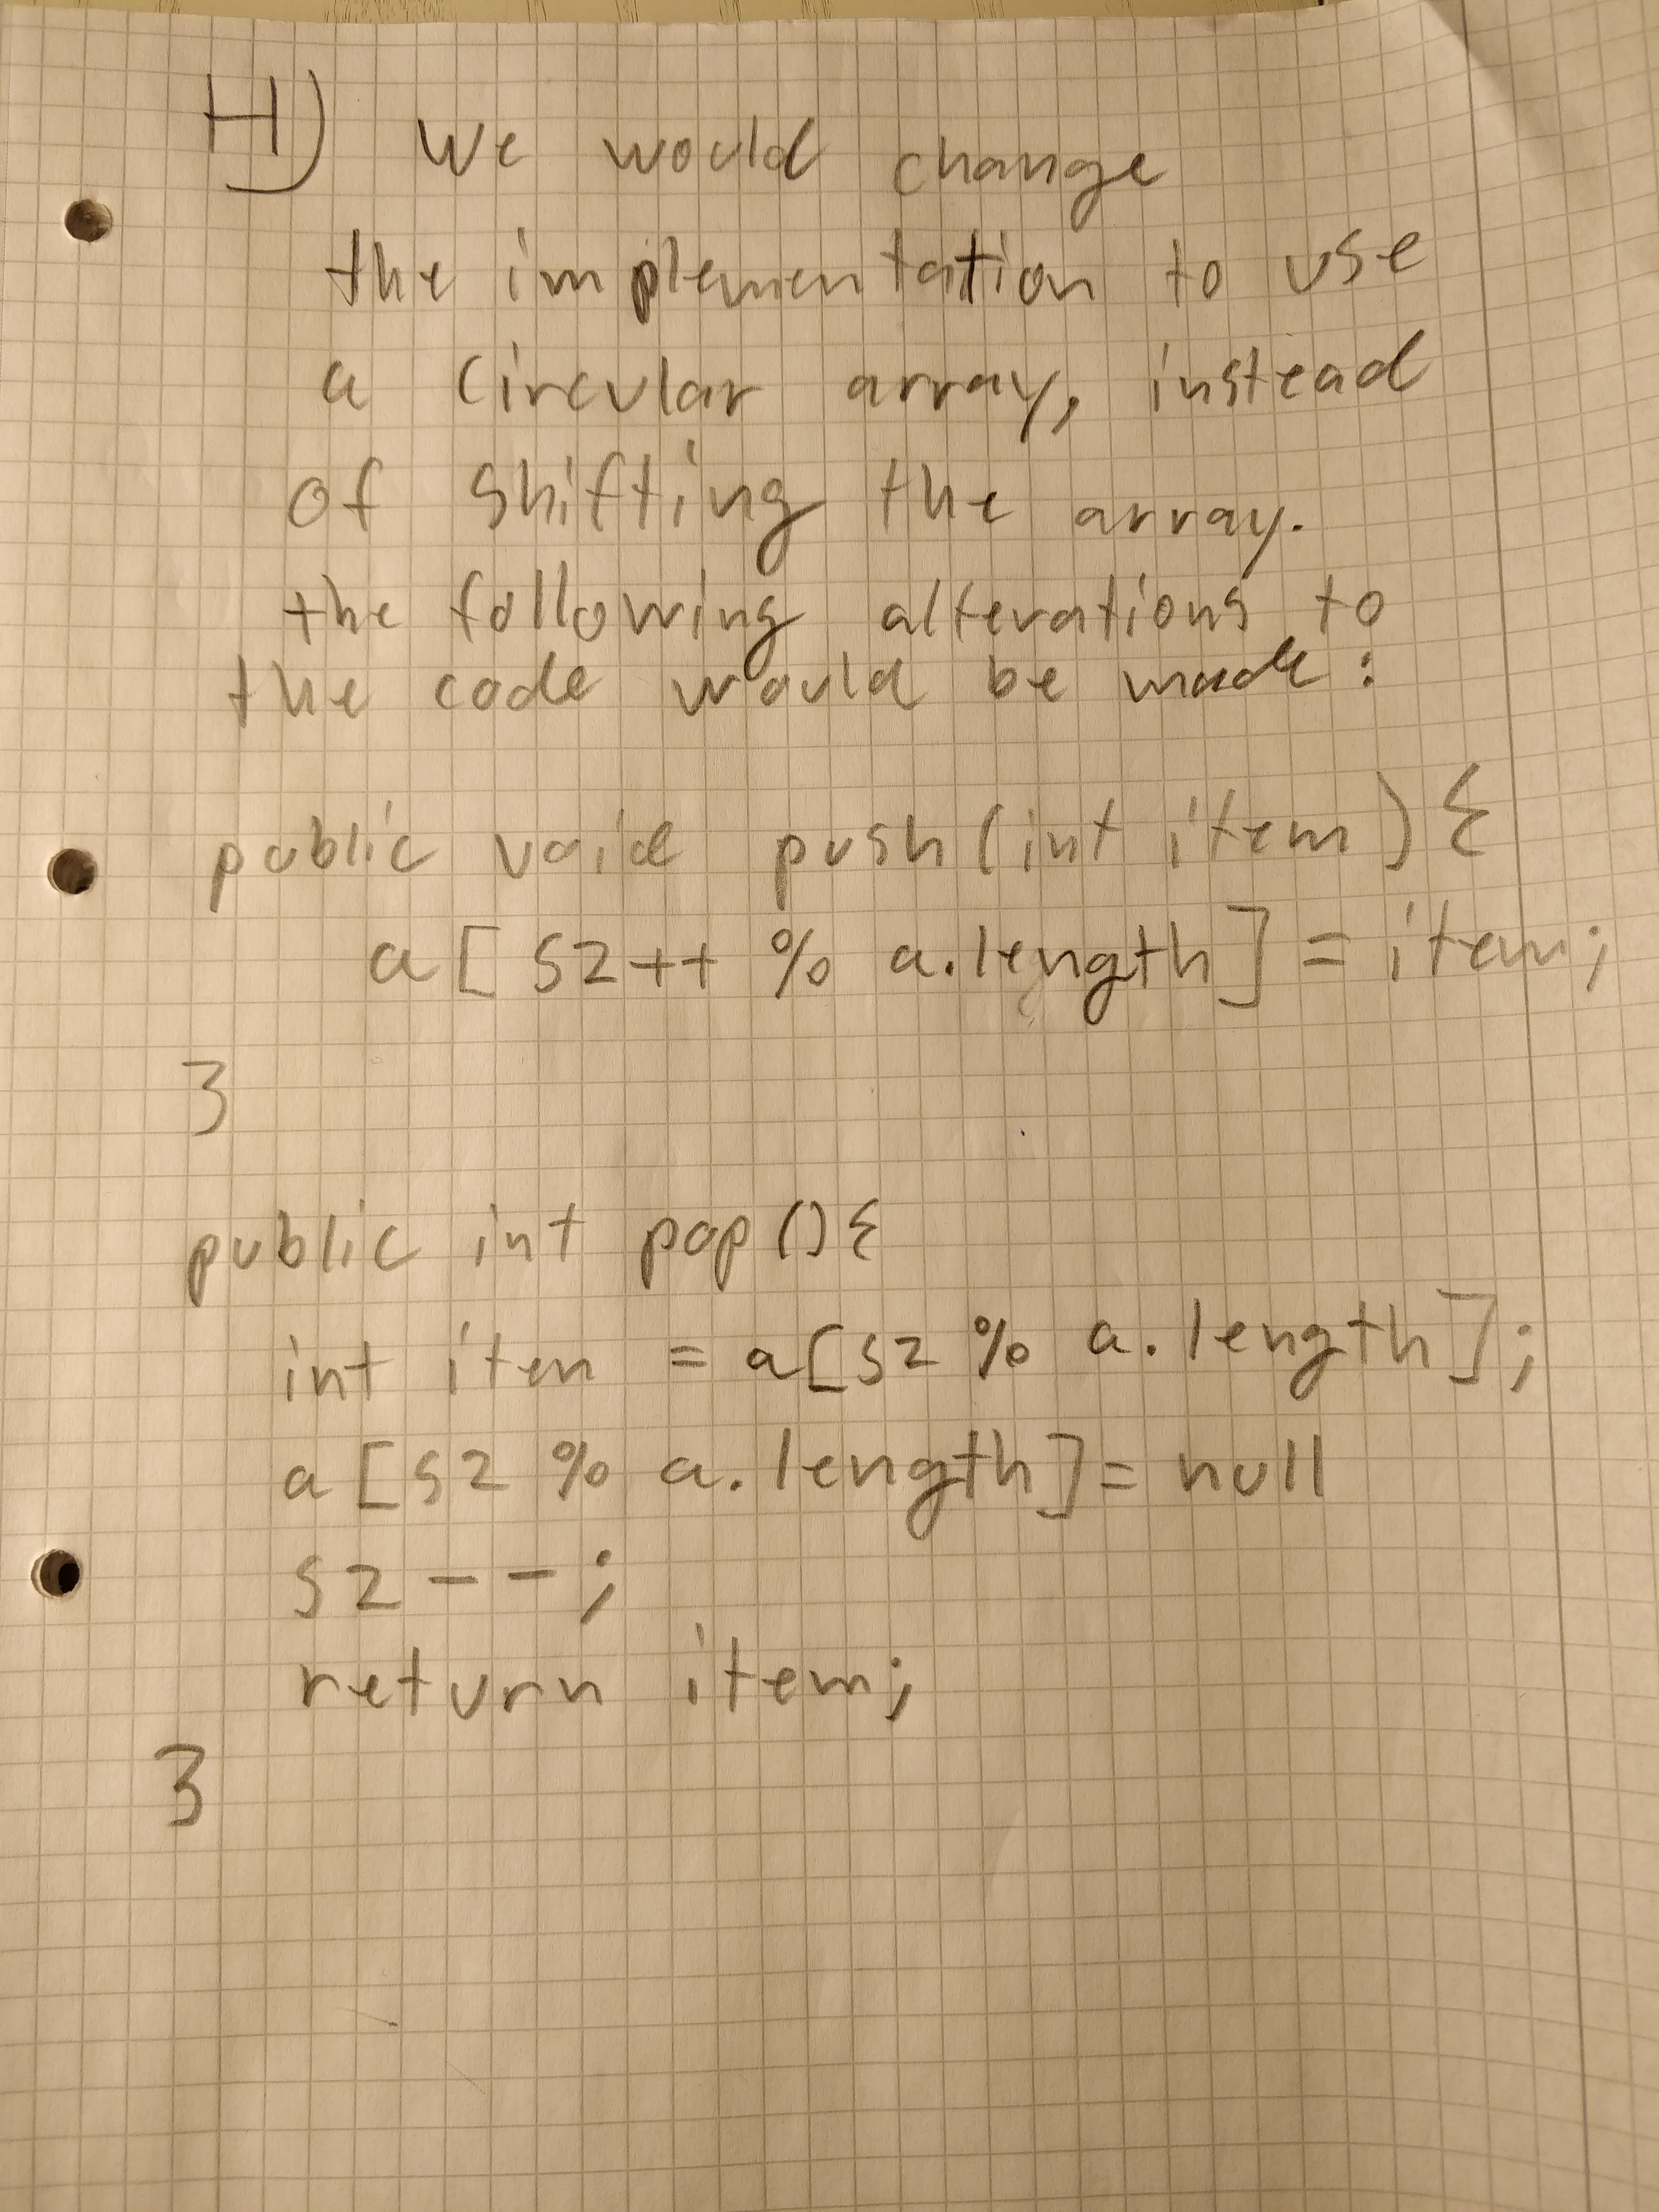 H) We would change
the implementation to use
a circular array, instead
of shifting the array.
the following alterations to
the code would be made:
public void push(int item){
a[sz++ % a.length] = item;
}
public int pop(){
int item = a[sz % a.length];
a[sz % a.length] = null
sz--;
return item;
}